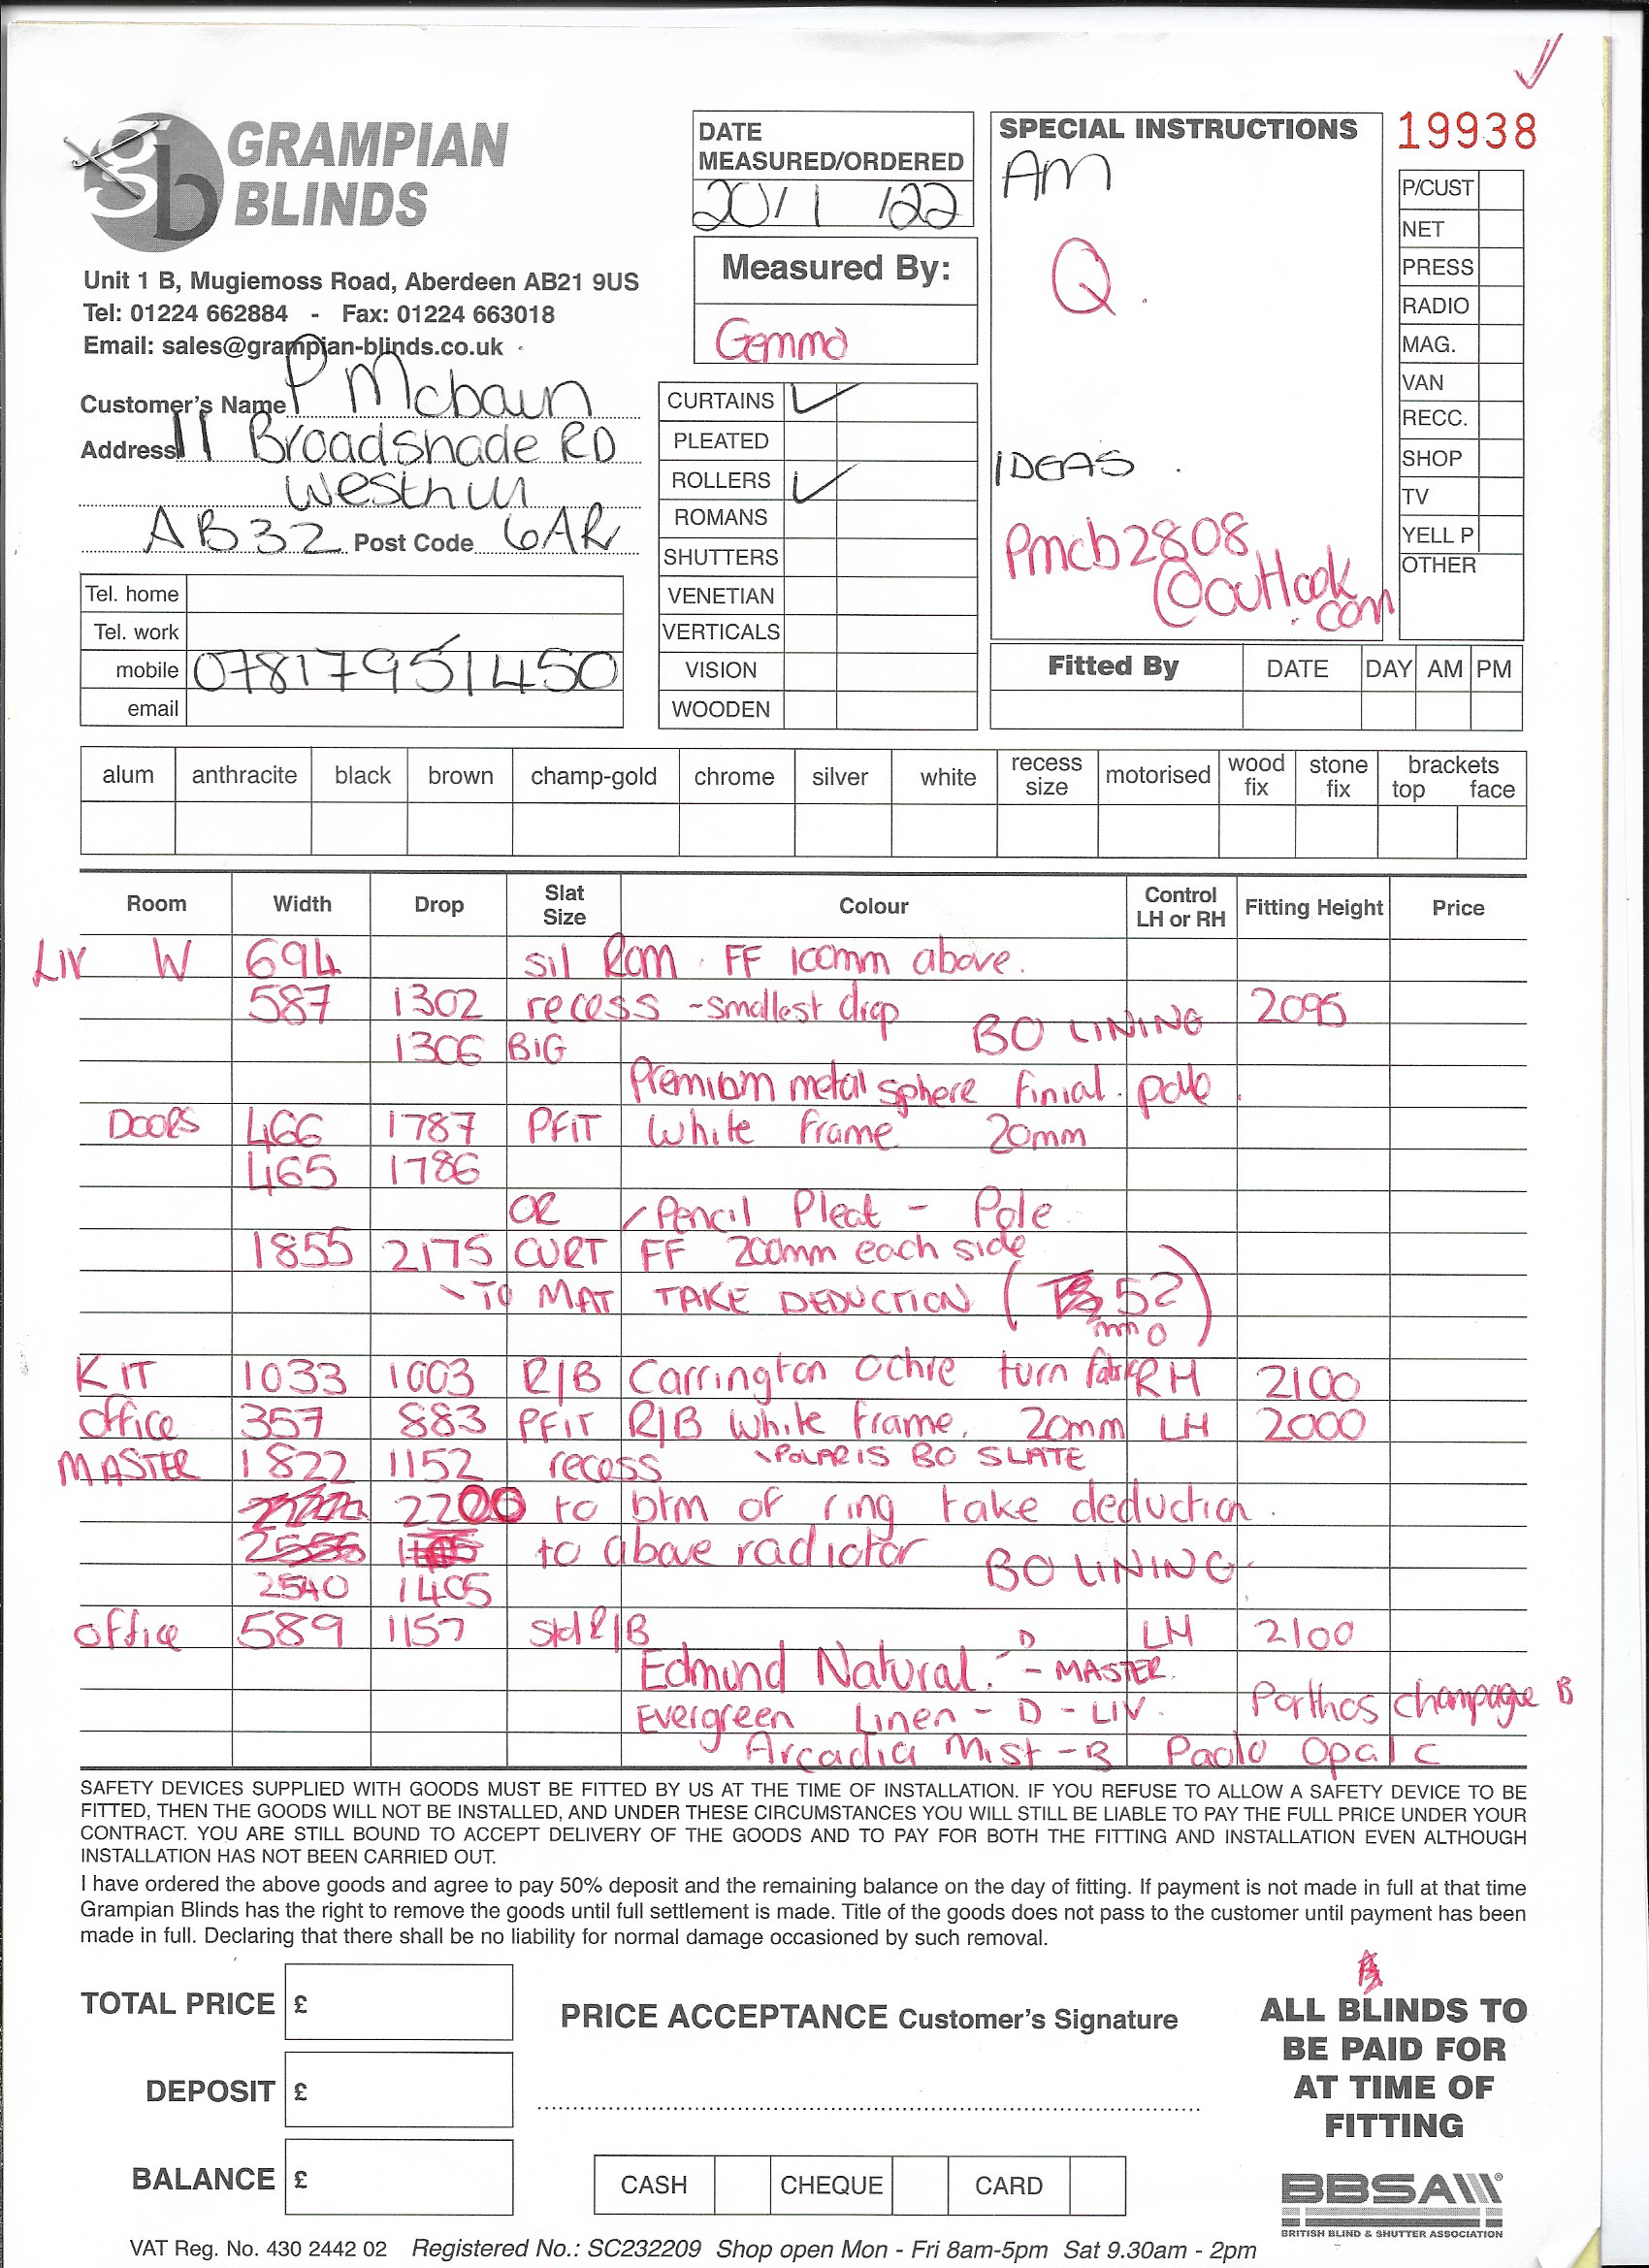 19938
GRAMPIAN
BLINDS
Unit 1 B, Mugiemoss Road, Aberdeen AB21 9US
Tel: 01224 662884 - Fax: 01224 663018
Email: sales@grampian-blinds.co.uk
Customer's Name P Mcbain
Address 11 Broadshade RD
Westhill
AB32 Post Code 6AR
Tel. home
Tel. work
mobile 07817951450
email
DATE
MEASURED/ORDERED
20/1/22
Measured By:
Gemma
CURTAINS ✓
PLEATED
ROLLERS ✓
ROMANS
SHUTTERS
VENETIAN
VERTICALS
VISION
WOODEN
SPECIAL INSTRUCTIONS
AM
Q.
IDEAS
Pmcb2808
@outlook
.com
P/CUST
NET
PRESS
RADIO
MAG.
VAN
RECC.
SHOP
TV
YELL P
OTHER
Fitted By DATE DAY AM PM
alum anthracite black brown champ-gold chrome silver white recess size motorised wood fix stone fix brackets top face
Room Width Drop Slat Size Colour Control LH or RH Fitting Height Price
LIV W 694 sil Rom. FF 100mm above.
587 1302 recess - smallest drop 2095
1306 BIG BO LINING
Premium metal sphere finial. pole.
DOORS 466 1787 PFIT White Frame 20mm
465 1786
OR / Pencil Pleat - Pole
1855 2175 CURT FF 200mm each side
TO MAT TAKE DEDUCTION ( 52
mm
KIT 1033 1003 R/B Carrington Ochre turn fabric RH 2100
office 357 883 PFIT R/B White Frame. 20mm LH 2000
MASTER 1822 1152 recess \POLARIS BO SLATE
2200 to btm of ring take deduction.
to above radiator BO LINING
2540 1405
office 589 1157 std R/B LH 2100
Edmund Natural. D - MASTER.
Evergreen Linen - D - LIV. Porthos champagne B
Arcadia Mist - B Paolo Opal C
SAFETY DEVICES SUPPLIED WITH GOODS MUST BE FITTED BY US AT THE TIME OF INSTALLATION. IF YOU REFUSE TO ALLOW A SAFETY DEVICE TO BE
FITTED, THEN THE GOODS WILL NOT BE INSTALLED, AND UNDER THESE CIRCUMSTANCES YOU WILL STILL BE LIABLE TO PAY THE FULL PRICE UNDER YOUR
CONTRACT. YOU ARE STILL BOUND TO ACCEPT DELIVERY OF THE GOODS AND TO PAY FOR BOTH THE FITTING AND INSTALLATION EVEN ALTHOUGH
INSTALLATION HAS NOT BEEN CARRIED OUT.
I have ordered the above goods and agree to pay 50% deposit and the remaining balance on the day of fitting. If payment is not made in full at that time
Grampian Blinds has the right to remove the goods until full settlement is made. Title of the goods does not pass to the customer until payment has been
made in full. Declaring that there shall be no liability for normal damage occasioned by such removal.
TOTAL PRICE £
DEPOSIT £
BALANCE £
PRICE ACCEPTANCE Customer's Signature
CASH CHEQUE CARD
ALL BLINDS TO
BE PAID FOR
AT TIME OF
FITTING
BBSA
BRITISH BLIND & SHUTTER ASSOCIATION
VAT Reg. No. 430 2442 02 Registered No.: SC232209 Shop open Mon - Fri 8am-5pm Sat 9.30am - 2pm